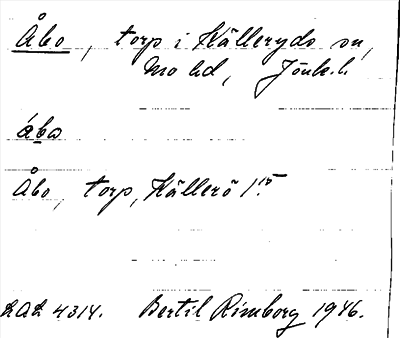 Åbo, torp i Källeryds sn,
Mo hd, Jönk. l.
åbo
Åbo, torp, Källerö 1 15.
LAL 4314. Bertil Rimborg 1946.